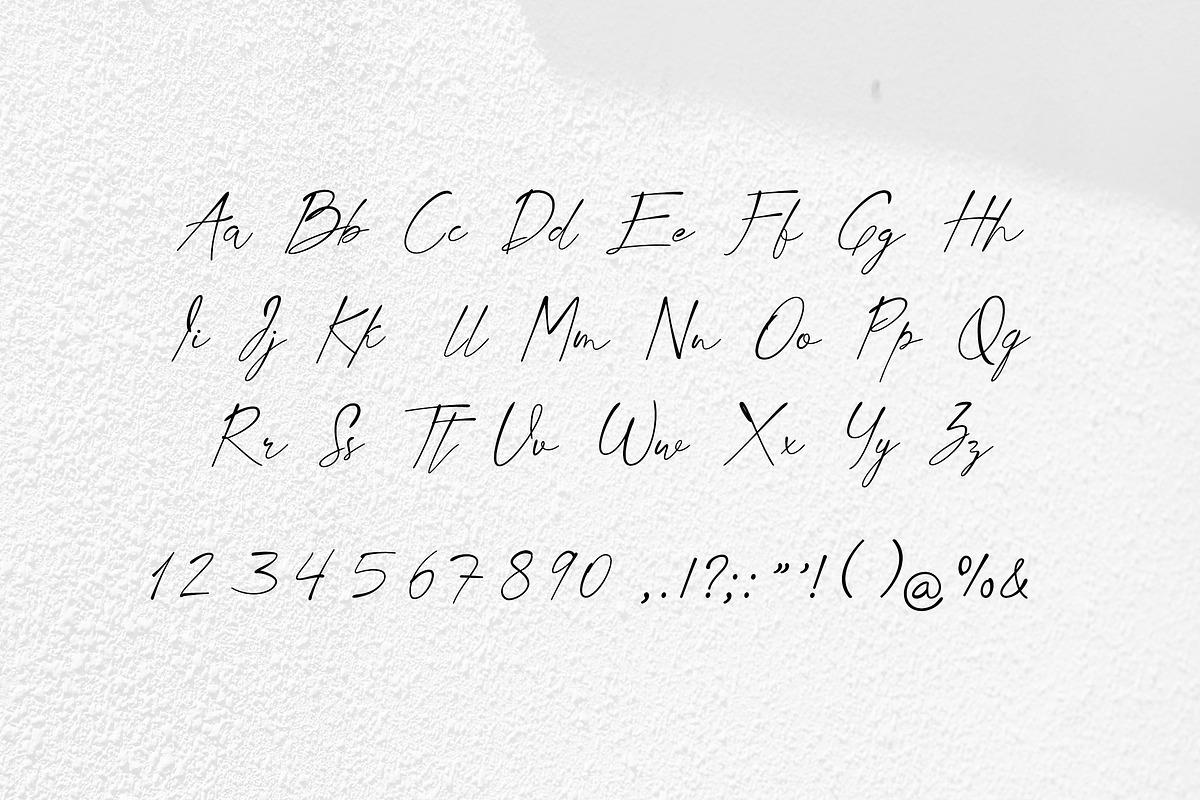 Aa Bb Cc Dd Ee Ff Gg Hh
Ii Jj Kk Ll Mm Nn Oo Pp Qq
Rr Ss Tt Vv Ww Xx Yy Zz
1 2 3 4 5 6 7 8 9 0 ,./?;:”’!( )@%&